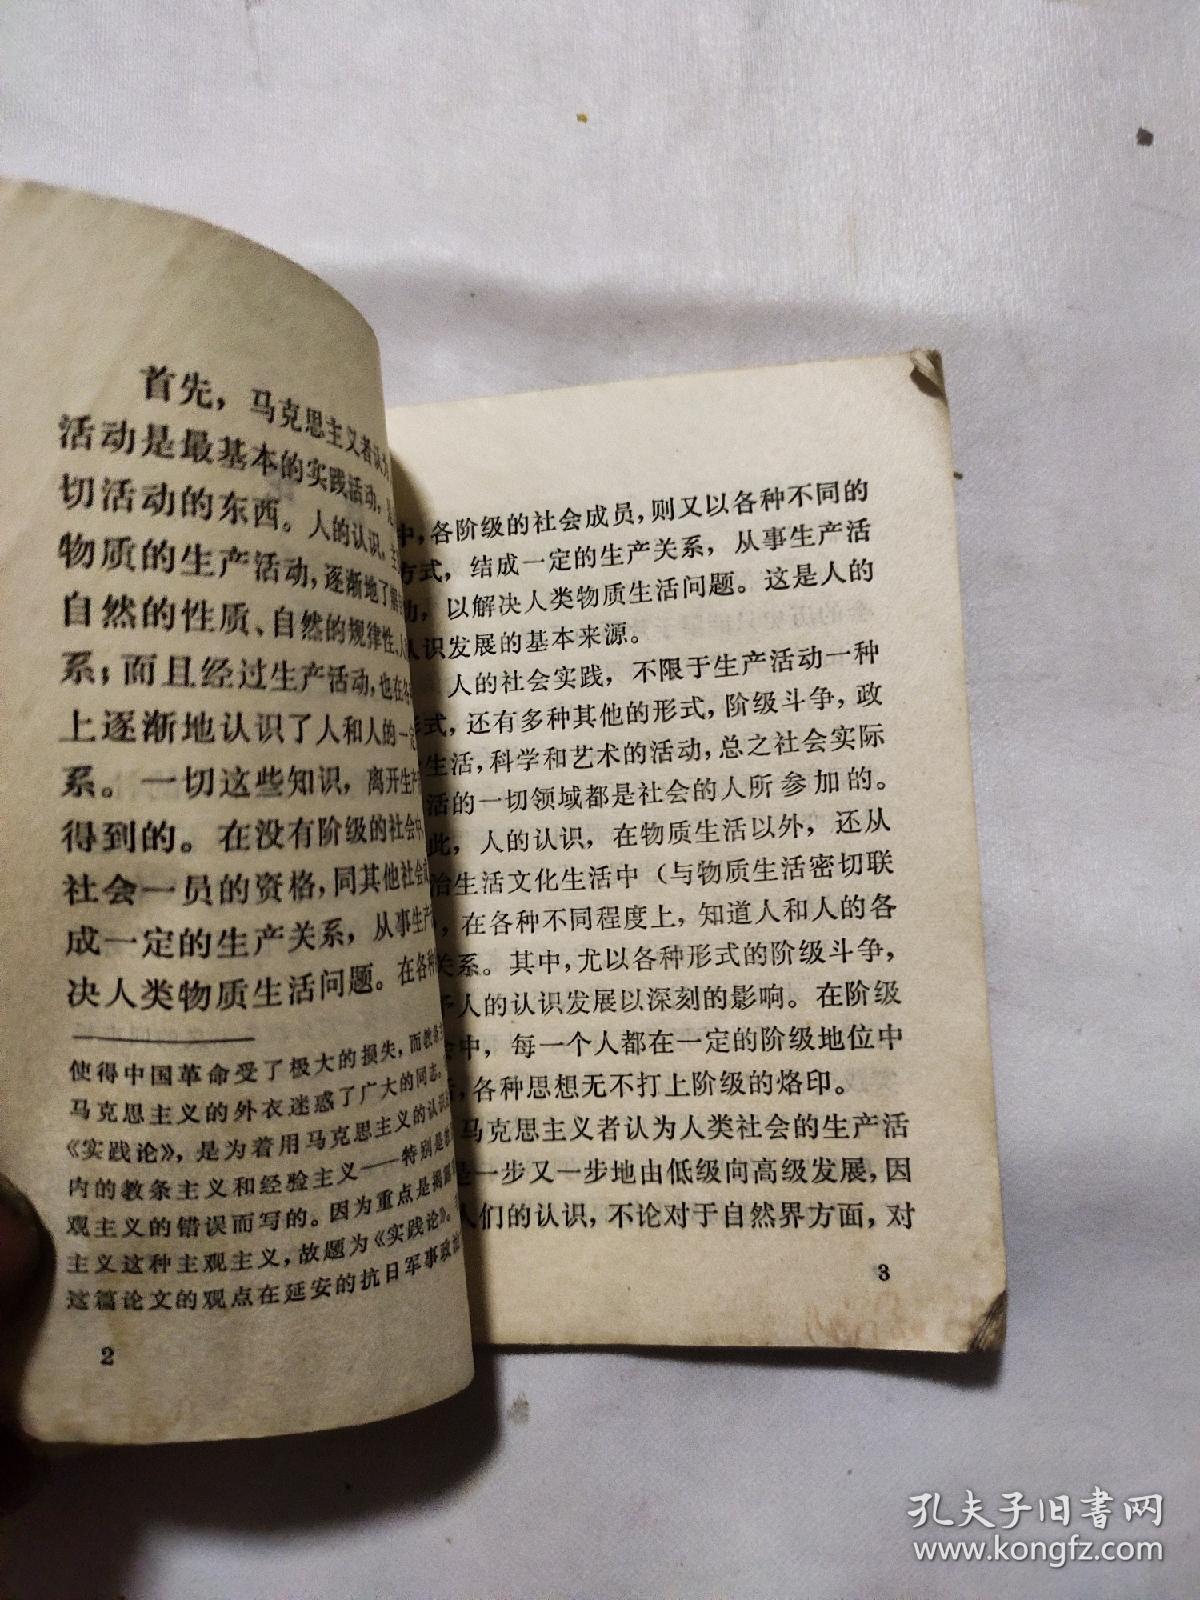 首先，马克思主义者认为
活动是最基本的实践活动，是
切活动的东西。人的认识，主
物质的生产活动，逐渐地了解
自然的性质、自然的规律性、人
系；而且经过生产活动，也在各
上逐渐地认识了人和人的一定
系。一切这些知识，离开生产
得到的。在没有阶级的社会中
社会一员的资格，同其他社会
成一定的生产关系，从事生产
决人类物质生活问题。在各种
使得中国革命受了极大的损失，而教条主
马克思主义的外衣迷惑了广大的同志。
《实践论》，是为着用马克思主义的认识
内的教条主义和经验主义——特别是教
观主义的错误而写的。因为重点是揭露
主义这种主观主义，故题为《实践论》。
这篇论文的观点在延安的抗日军事政治
2
中，各阶级的社会成员，则又以各种不同的
方式，结成一定的生产关系，从事生产活
动，以解决人类物质生活问题。这是人的
认识发展的基本来源。
人的社会实践，不限于生产活动一种
形式，还有多种其他的形式，阶级斗争，政
生活，科学和艺术的活动，总之社会实际
活的一切领域都是社会的人所参加的。
此，人的认识，在物质生活以外，还从
治生活文化生活中（与物质生活密切联
，在各种不同程度上，知道人和人的各
关系。其中，尤以各种形式的阶级斗争，
予人的认识发展以深刻的影响。在阶级
会中，每一个人都在一定的阶级地位中
，各种思想无不打上阶级的烙印。
马克思主义者认为人类社会的生产活
是一步又一步地由低级向高级发展，因
人们的认识，不论对于自然界方面，对
3
孔夫子旧书网
www.kongfz.com